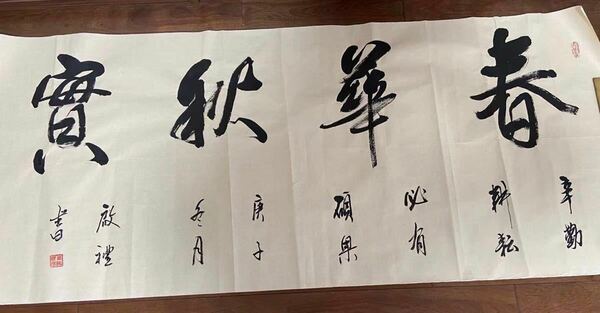 春華秋實
辛勤
耕耘
必有
碩果
庚子
冬月
啟禮
書